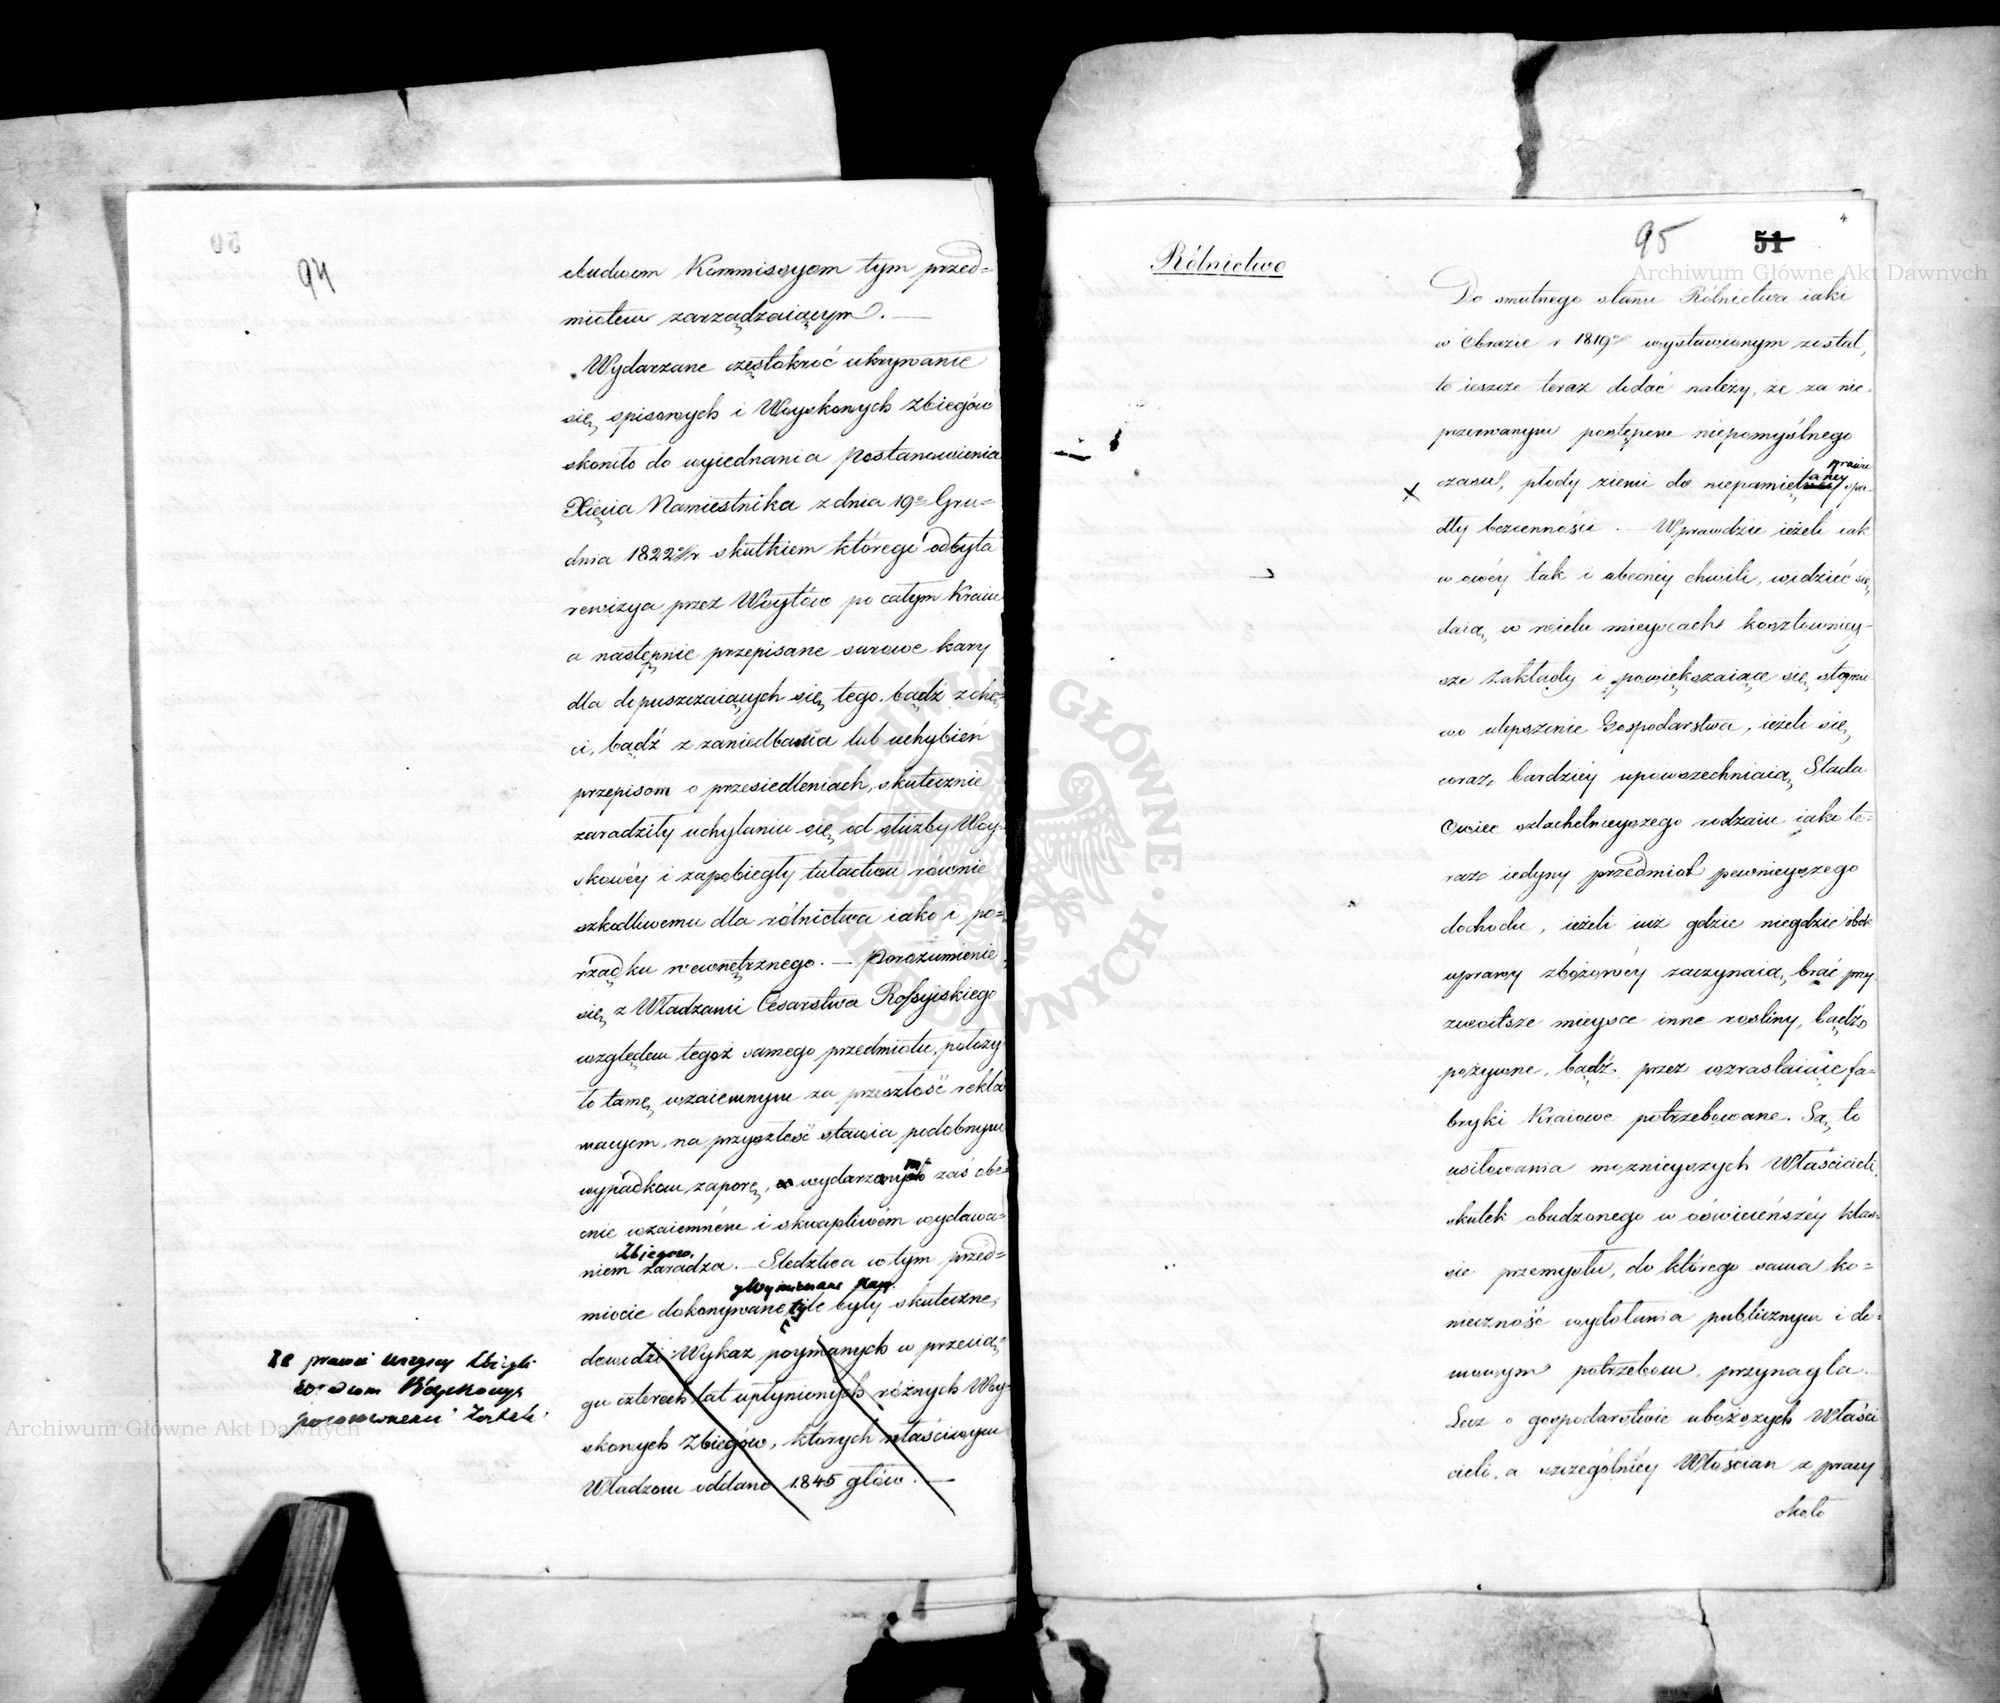 94
obudwom Kommissyom tym przed=
miotem zarządzaiącym. —
Wydarzane częstokroć ukrywanie
się, spisowych i Woyskowych Zbiegów
skoniło do wyiednania Postanowienia
Xięcia Namiestnika z dnia 19º Gru=
dnia 1822 r skutkiem którego odbyta
rewizya, przez Woytów po całym Kraiu
a następnie przepisane surowe kary
dla dopuszczaiących się, tego. bądź z chę=
ci, bądź z zaniedbania lub uchybień
przepisom o przesiedleniach, skutecznie
zaradziły uchylaniu się, od służby Woy=
skowéy i zapobiegły tułactwu równie
szkodliwemu dla rólnictwa iako i po=
rządku wewnętrznego. — Porozumienie
się, z Władzami Cesarstwa Rossyiskiego
względem tegoż samego przedmiotu, położy
ło tamę, wzaiemnym za przeszłość rekla
macyom, na przyszłość stawia podobnym
wypadkom zaporę, wydarzonym zaś obe=
cnie wzaiemném i skwapliwém wydawa=
Zbiegów
niem zaradza. — Sledztwa w tym przed=
miocie dokonywane tyle były skuteczne,
dowodzi Wykaz poymanych w przecią=
gu czterech lat upłynionych różnych Woy=
skowych Zbiegów, których właściwym
Władzom oddano 1845 głów. —
że prawie wszyscy Zbiegli
Archiwum Główne Akt Dawnych
Rólnictwo
95 51
Archiwum Główne Akt Dawnych
Do smutnego stanu Rólnictwa iaki
w Obrazie r 1819 wystawionym został,
to ieszcze teraz dodać należy, że za nie=
przerwanym postępem niepomyślnego
prawie
czasu, płody ziemi do niepamiętaney opa=
dły bezcenności. — Wprawdzie ieżeli iak
w owéy tak i obecnéy chwili, widzieć się,
daią, w wielu mieyscach kosztowniey=
sze Zakłady i powiększaiące się, stopnio
wo ulepszenie Gospodarstwa, ieżeli się,
coraz, bardziéy upowszechniaią, Stada
Owiec szlachetnieyszego rodzaiu iako te=
raz iedyny przedmiot pewnieyszego
dochodu, ieżeli iuż gdzie niegdzie obok
uprawy zbożowéy zaczynaią, brać przy
zwoitsze mieysce inne rośliny, bądź
pożywne, bądź przez wzrastaiące fa=
bryki Kraiowe potrzebowane. Są, to
usiłowania możnieyszych Właścicieli,
skutek obudzonego w oświecénszéy klas=
sie przemysłu, do którego sama ko=
nieczność wydołania publicznym i do=
mowym potrzebom, przynagla.
Lecz o gospodarstwie uboższych Właści
cieli, a szczególniéy Włościan z pracy
około
ARCHIWUM GŁÓWNE AKT DAWNYCH